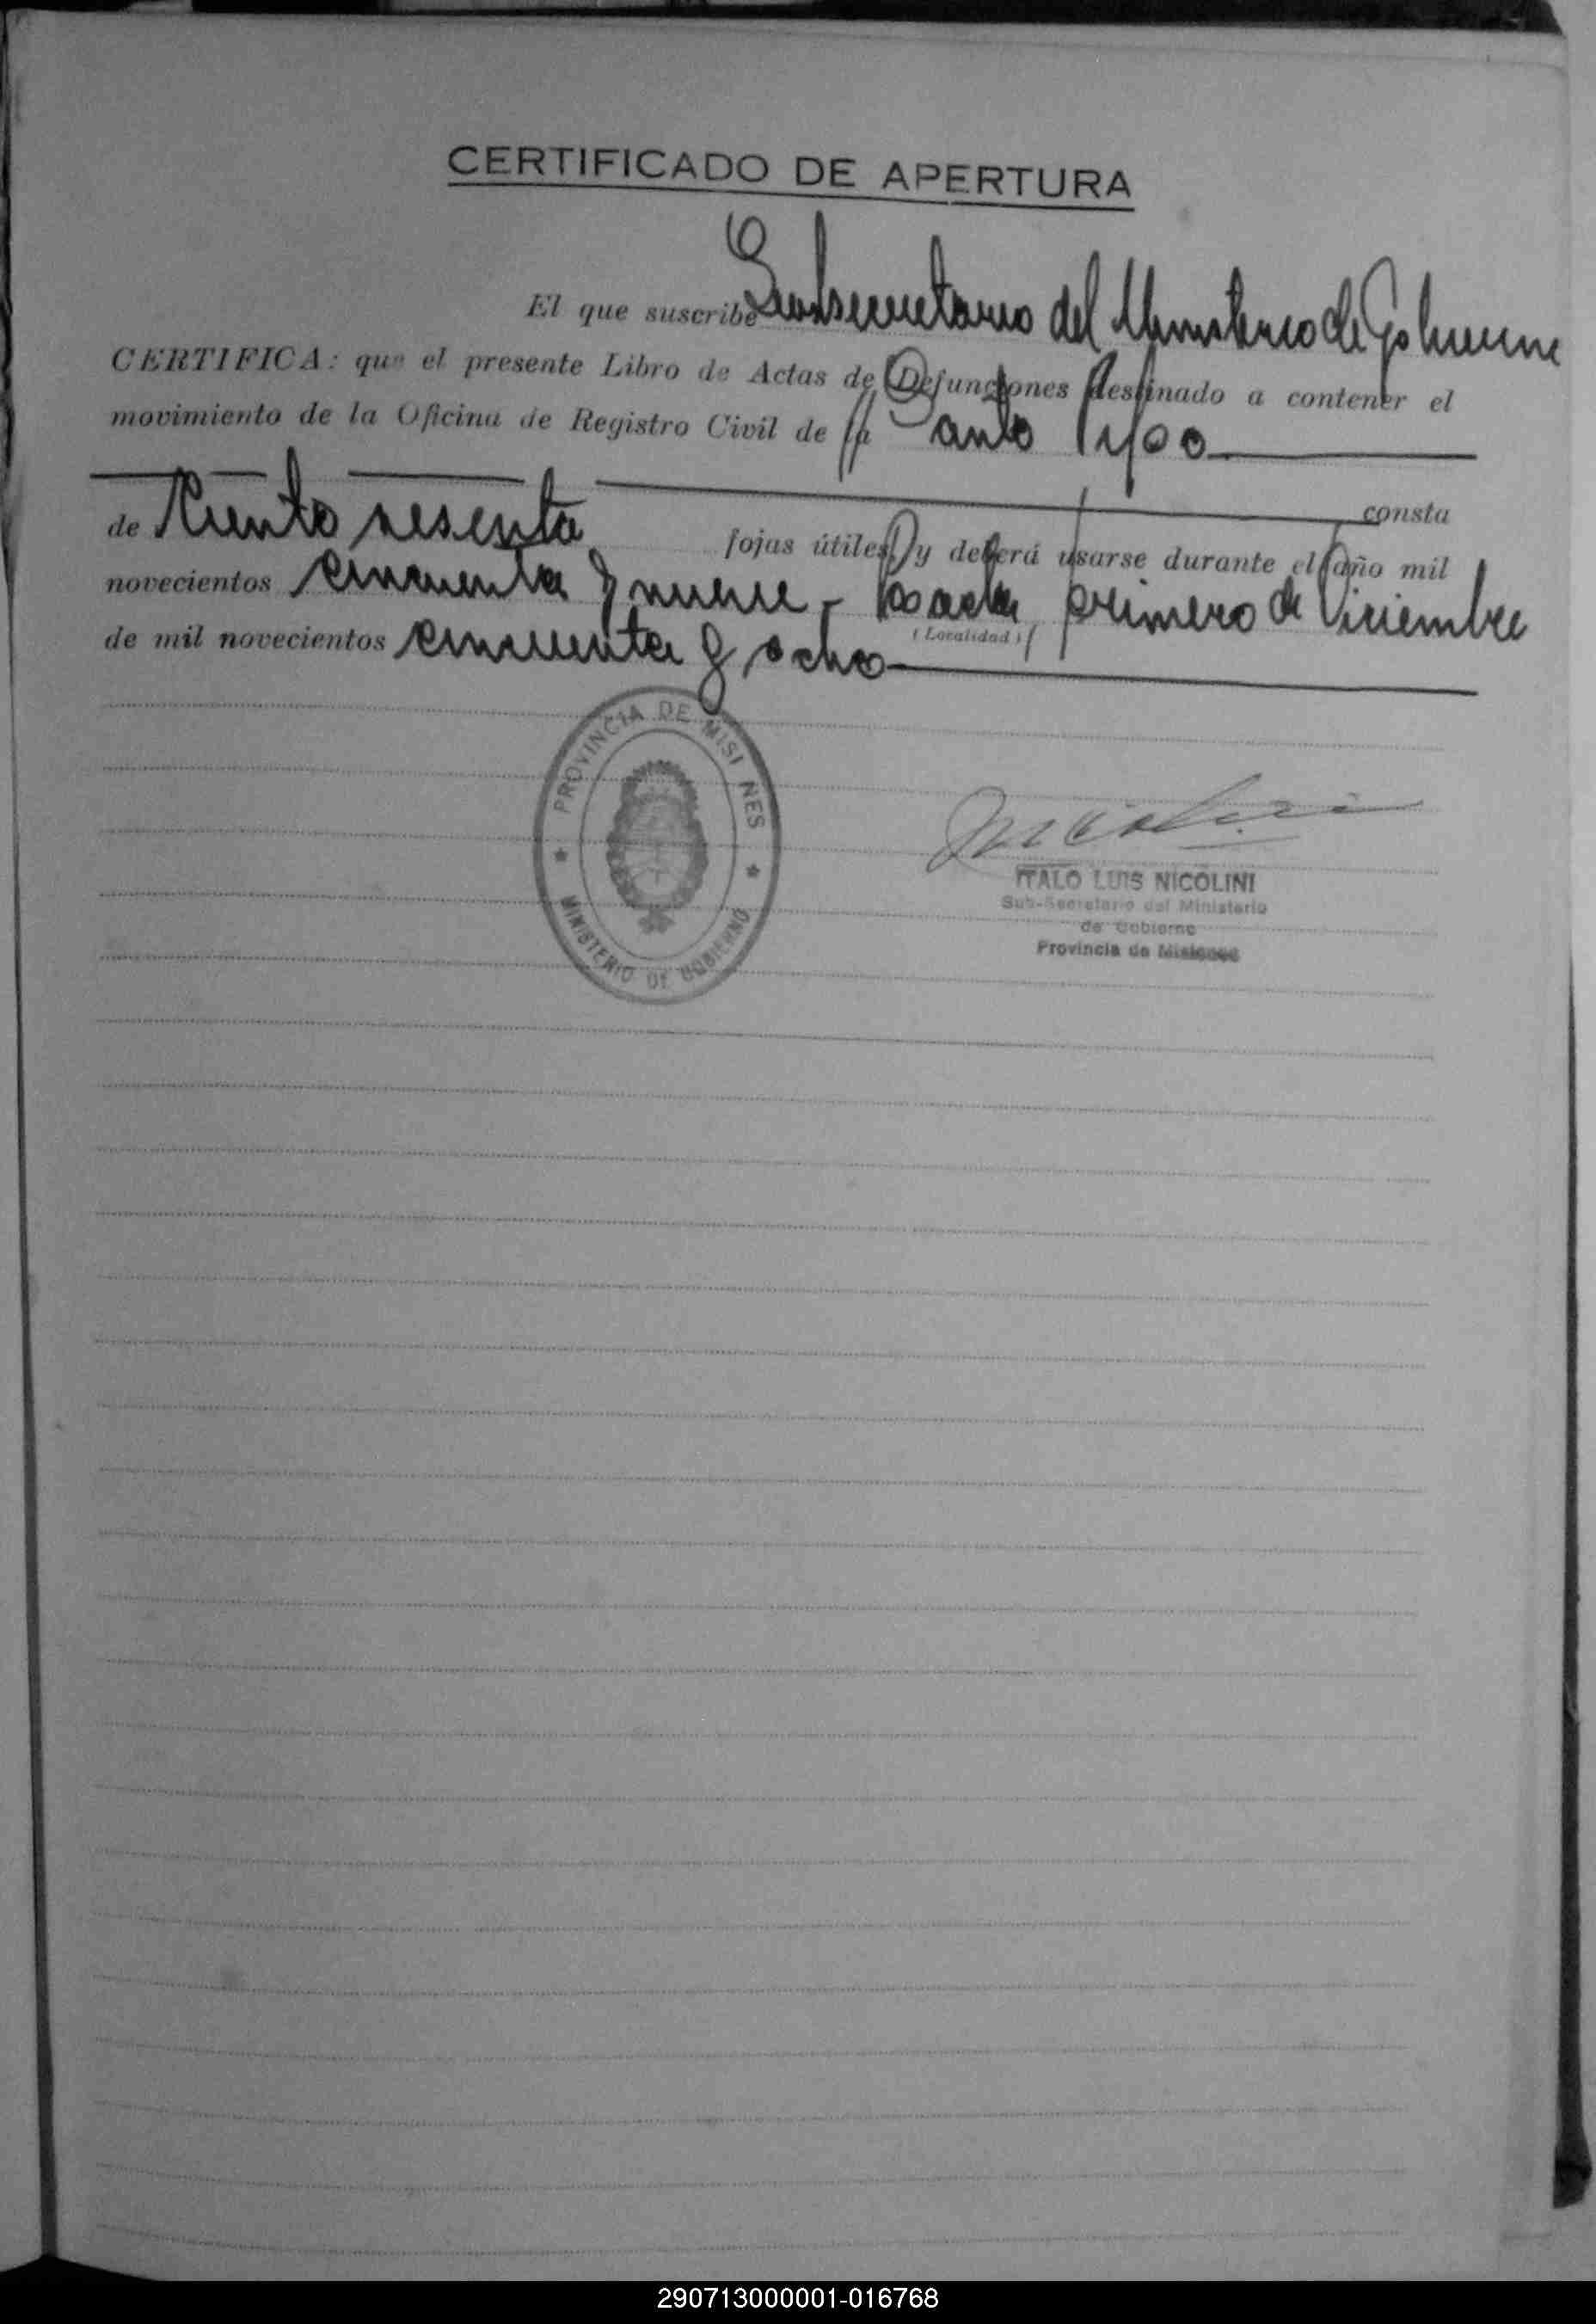 CERTIFICADO DE APERTURA
El que suscribe Subsecretario del Ministerio de Gobierno
CERTIFICA: que el presente Libro de Actas de Defunciones destinado a contener el
movimiento de la Oficina de Registro Civil de la Santo Pipó
consta
de Ciento sesenta fojas útiles y deberá usarse durante el año mil
novecientos cincuenta y nueve.- Posadas, primero de Diciembre
(Localidad)
de mil novecientos cincuenta y ocho
PROVINCIA DE MISI NES
MINISTERIO DE GOBIERNO
Nicolini
ITALO LUIS NICOLINI
Sub-Secretario del Ministerio
de Gobierno
Provincia de Misiones
290713000001-016768